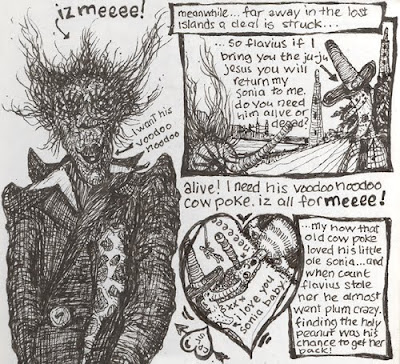 iz meeee!
I want his
voodoo
noodoo
meanwhile... far away in the lost
islands a deal is struck...
... so flavius if I
bring you the ju-ju
jesus you will
return my
sonia to me.
do you need
him alive or
dead?
alive! I need his voodoo noodoo
cow poke. iz all for meeee!
I love you
sonia baby
...my how that
old cow poke
loved his little
ole sonia...and
when count
flavius stole
her he almost
went plum crazy.
finding the holy
peanut was his
chance to get her
back!